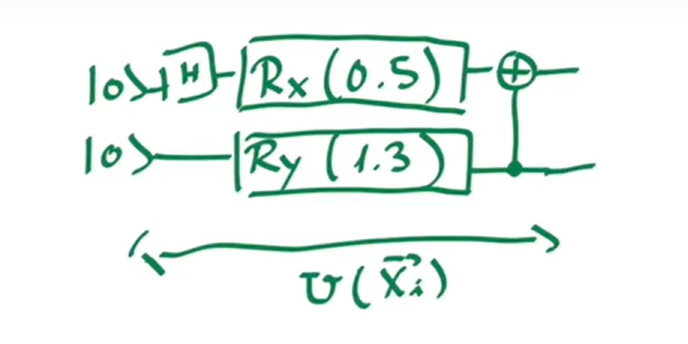 |0⟩ H Rx (0.5)
|0⟩ Ry (1.3)
U(x⃗i)